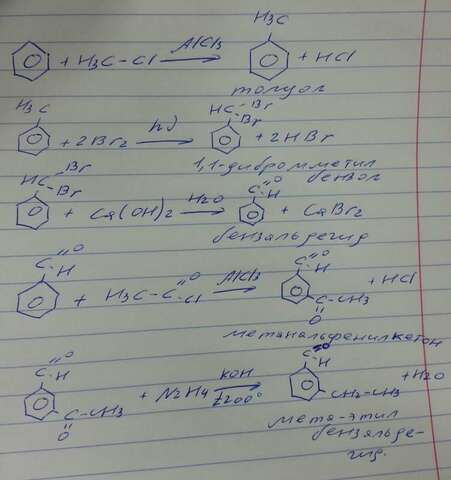 H3C
+ H3C-Cl AlCl3 → + HCl
толуол
H3C
+ 2Br2 hν → HC Br Br + 2HBr
1,1-дибромметил
бензол
HC Br Br + Ca(OH)2 H2O → C=O H + CaBr2
бензальдегид
C=O H + H3C-C=O Cl AlCl3 → C=O H C-CH3 O + HCl
метанальфенилкетон
C=O H C-CH3 O + N2H4 KOH t200° → C=O H CH2-CH3 + H2O
мета-этил
бензальде-
гид.